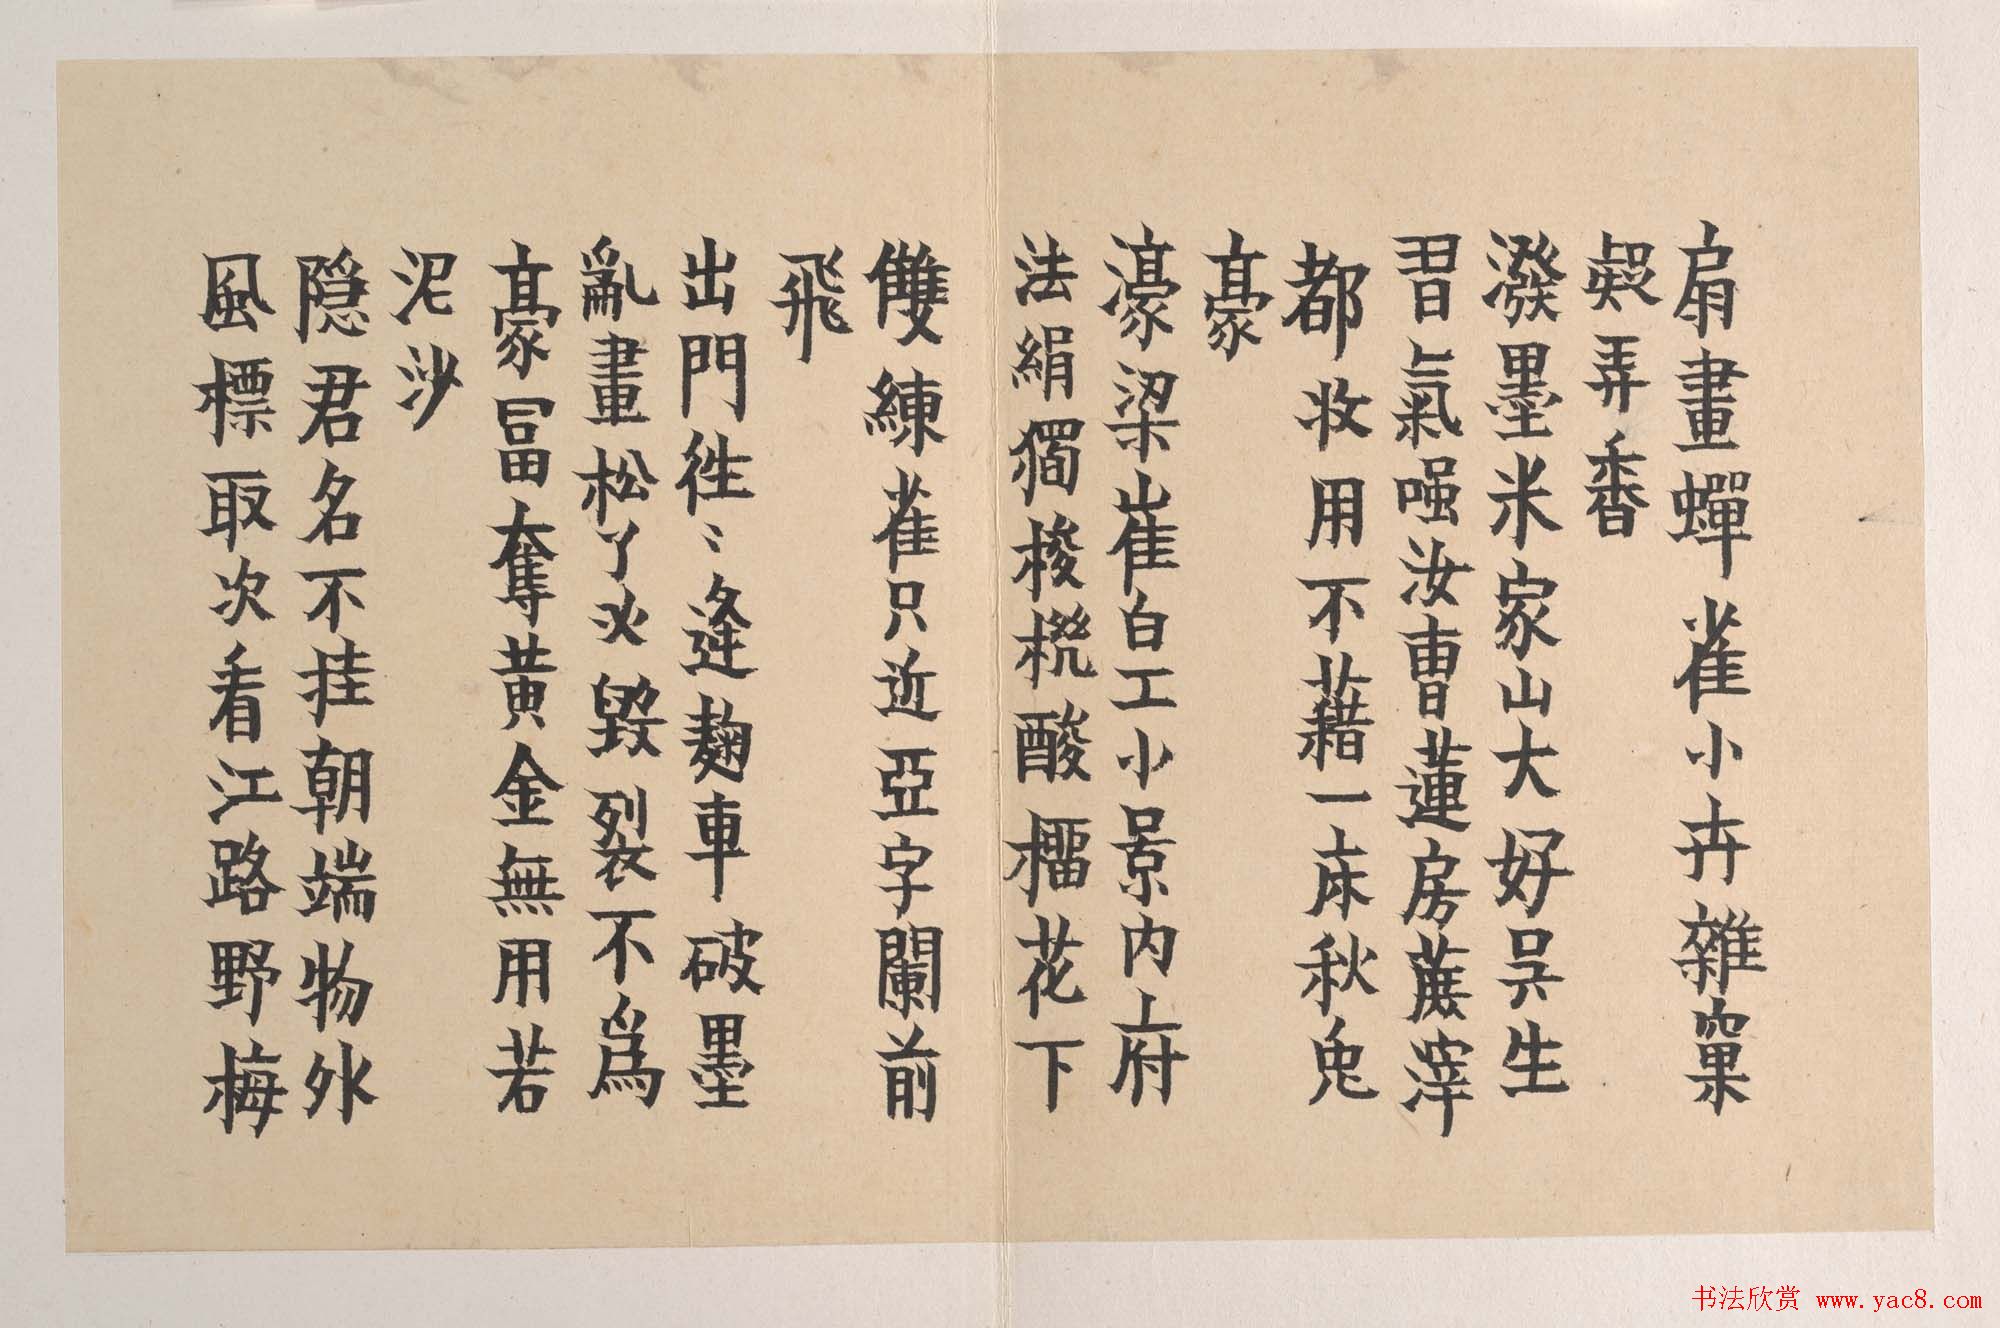 扇畫蟬雀小卉雜窠
疑弄香
潑墨米家山大好吳生
習氣强汝曹蓮房蔗滓
都收用不藉一床秋兔
豪
濠梁崔白工小景内府
法絹獨梭機酸榴花下
雙練雀只近亞字闌前
飛
出門徃〻逢麹車破墨
亂畫松丫𠬝毀裂不爲
豪冨奪黄金無用若
泥沙
隐君名不挂朝端物外
風標取次看江路野梅
书法欣赏 www.yac8.com